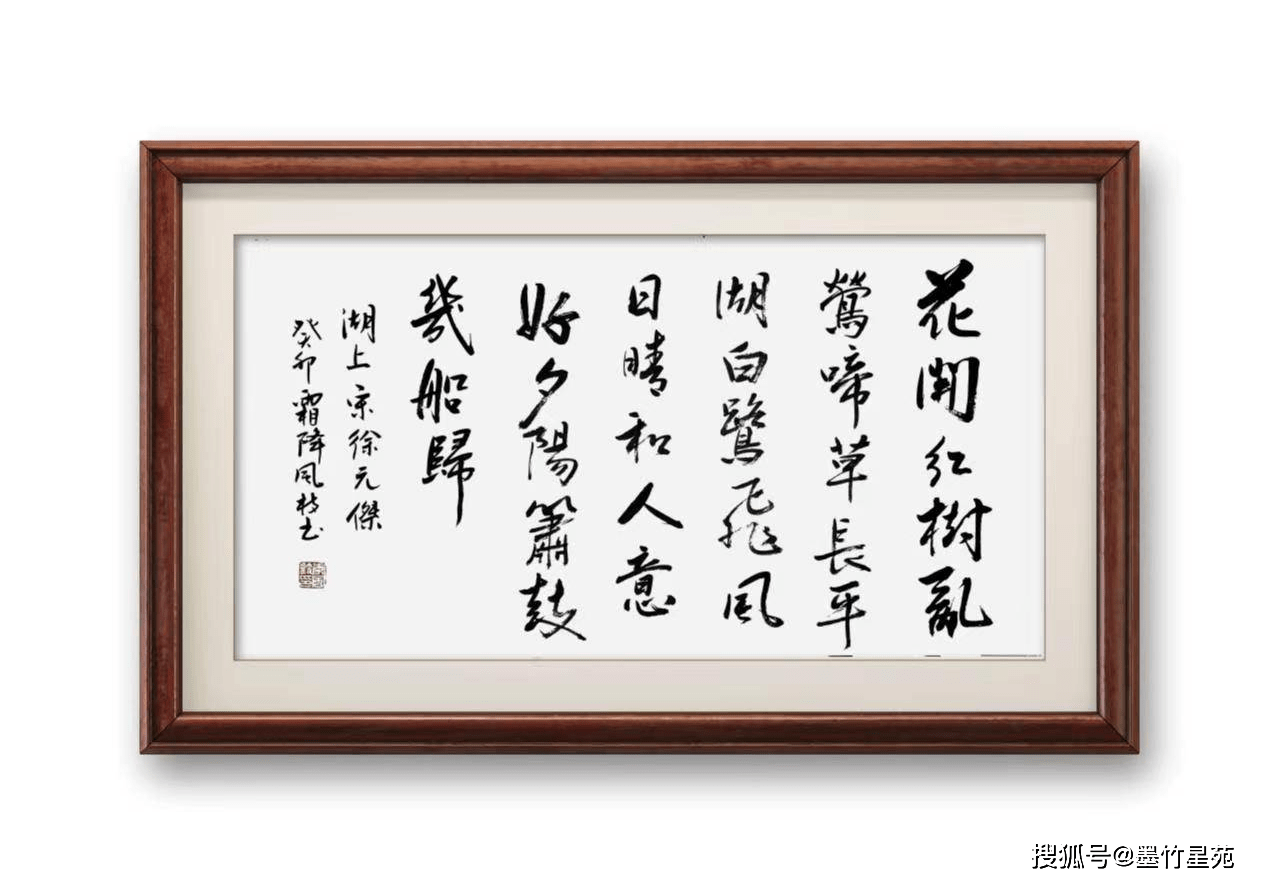 花開红樹亂
鶯啼草長平
湖白鷺飛風
日晴和人意
好夕陽簫鼓
幾船歸
湖上宋徐元傑
癸卯霜降风枝书
搜狐号@墨竹星苑